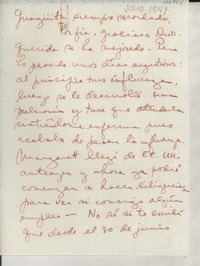 JULIO 1949
Juanjuith siempre recordada,
Por fin, gracias a Dios
querida se ha mejorado. Pero
he pasado unos días angustiosos:
al principio una influenza,
luego se le desarrolló una
pulmonía y tuve que atenderla
sintiéndome enferma pues
acababa de pasar la influenza.
Margaret llegó de EE. UU.
anteayer y ahora ya podré
comenzar a hacer diligencias
para ver si consigo algún
empleo — No sé si te escribí
que desde el 30 de junio